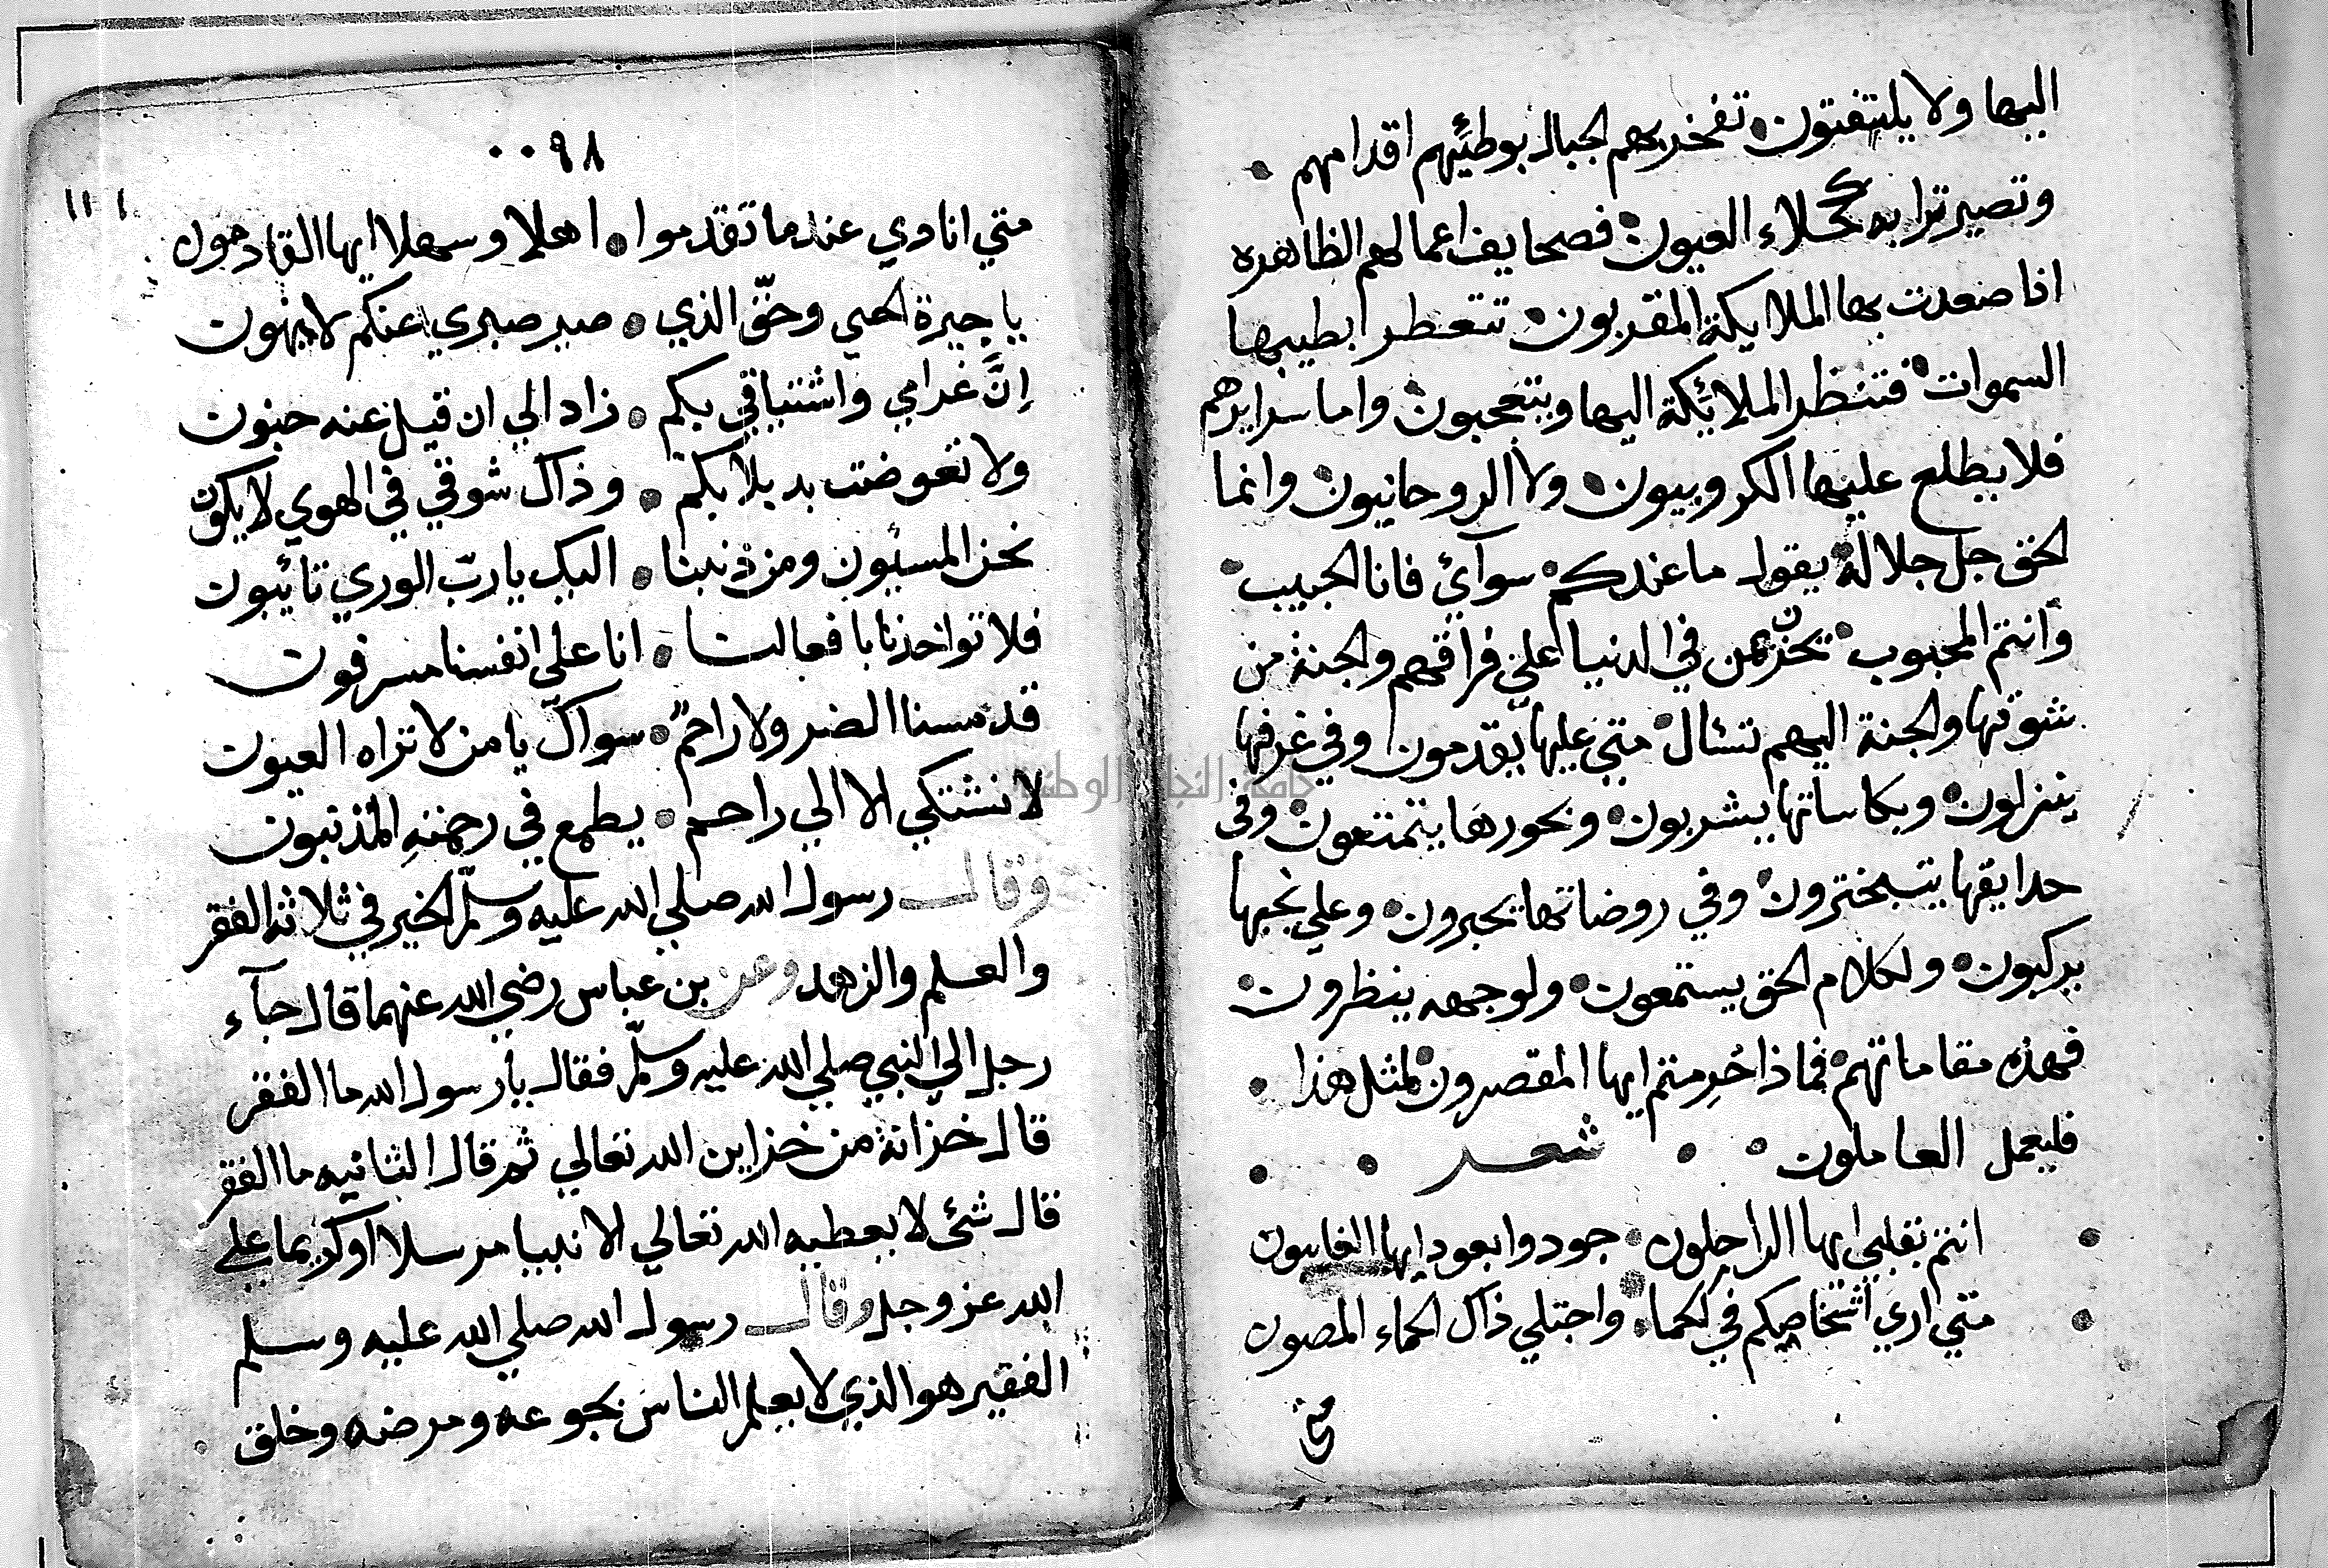 اليها ولا يلتفتون تفخر بهم الجبال بوطئهم اقدامهم
وتصير ترابه كحلاء العيون فصحايف اعمالهم الظاهره
اذا صعدت بها الملايكة المقربون تتعطر بطيبها
السموات فتنظر الملائكة اليها ويتعجبون واما سرايرهم
فلا يطلع عليها الكروبيون ولا الروحانيون وانما
الحق جل جلاله يقول ما عندكم سوآئي فانا الحبيب
وانتم المحبوب تحزن من في الدنيا علي فراقهم والجنة من
شوقها والجنة اليهم تسئال متي عليها يقدمون وفي غرفها
ينزلون وبكاساتها يشربون وبحورها يتمتعون وفي
حدايقها يتبخترون وفي روضاتها يحبرون وعلي نجبها
يركبون ولكلام الحق يستمعون ولوجهه ينظرون
فهذه مقاماتهم فماذا حُرِمتم ايها المقصرون لمثل هذا
فليعمل العاملون شعر
انتم بقلبي ايها الراحلون جودوا بعود ايها الغايبون
متي اري اشخاصكم في الحما واجتلي ذاك الحماء المصون
متي
٠٠٩٨
١١١
متي انادي عندما تقدموا اهلا وسهلا ايها القادمون
يا جيرة الحي وحقّ الذي صبر صبري عنكم لا يهون
إنّ غرامي واشتياقي بكم زاد الي ان قيل عنه جنون
ولا تعوضت بديلا بكم وذاك شوقي في الهوي لا يكون
نحن المسيئون ومن ذنبنا اليك يا ربّ الوري تائيبون
فلا تواخذنا بافعالنا انا علي انفسنا مسرفون
قد مسنا الضر ولا راحم سواك يا من لا تراه العيون
لا نشتكي الا الي راحم يطمع في رحمتهِ المذنبون
وقال رسول الله صلي الله عليه وسلّم الخير في ثلاثه الفقر
والعلم والزهد وعن بن عباس رضي الله عنهما قال جآء
رجل الي النبي صلي الله عليه وسلّم فقال يا رسول الله ما الفقر
قال خزانة من خزاين الله تعالي ثم قال الثانيه ما الفقر
قال شئ لا يعطيه الله تعالي الا نبيا مرسلا او كريما علي
الله عز وجل وقال رسول الله صلي الله عليه وسلم
الفقير هو الذي لا يعلم الناس بجوعه ومرضه وخلق